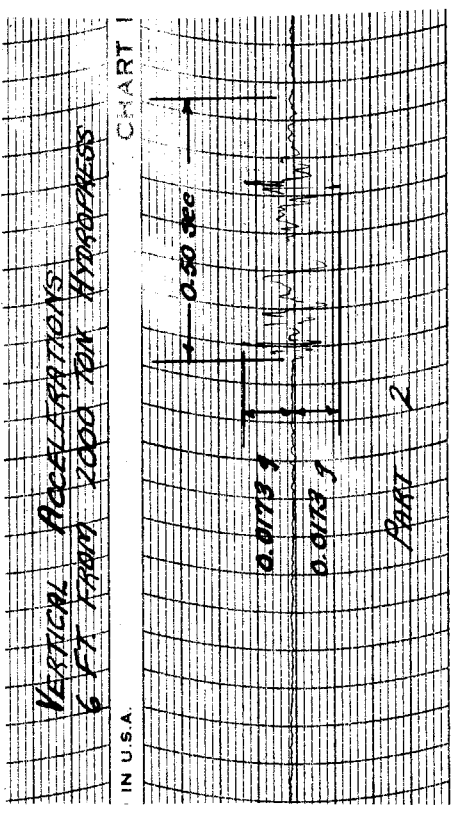 VERTICAL ACCELERATIONS
6 FT FROM 2000 TON HYDROPRESS
IN U.S.A.
CHART
0.50 sec
0.0173 g
0.0173 g
PART 2